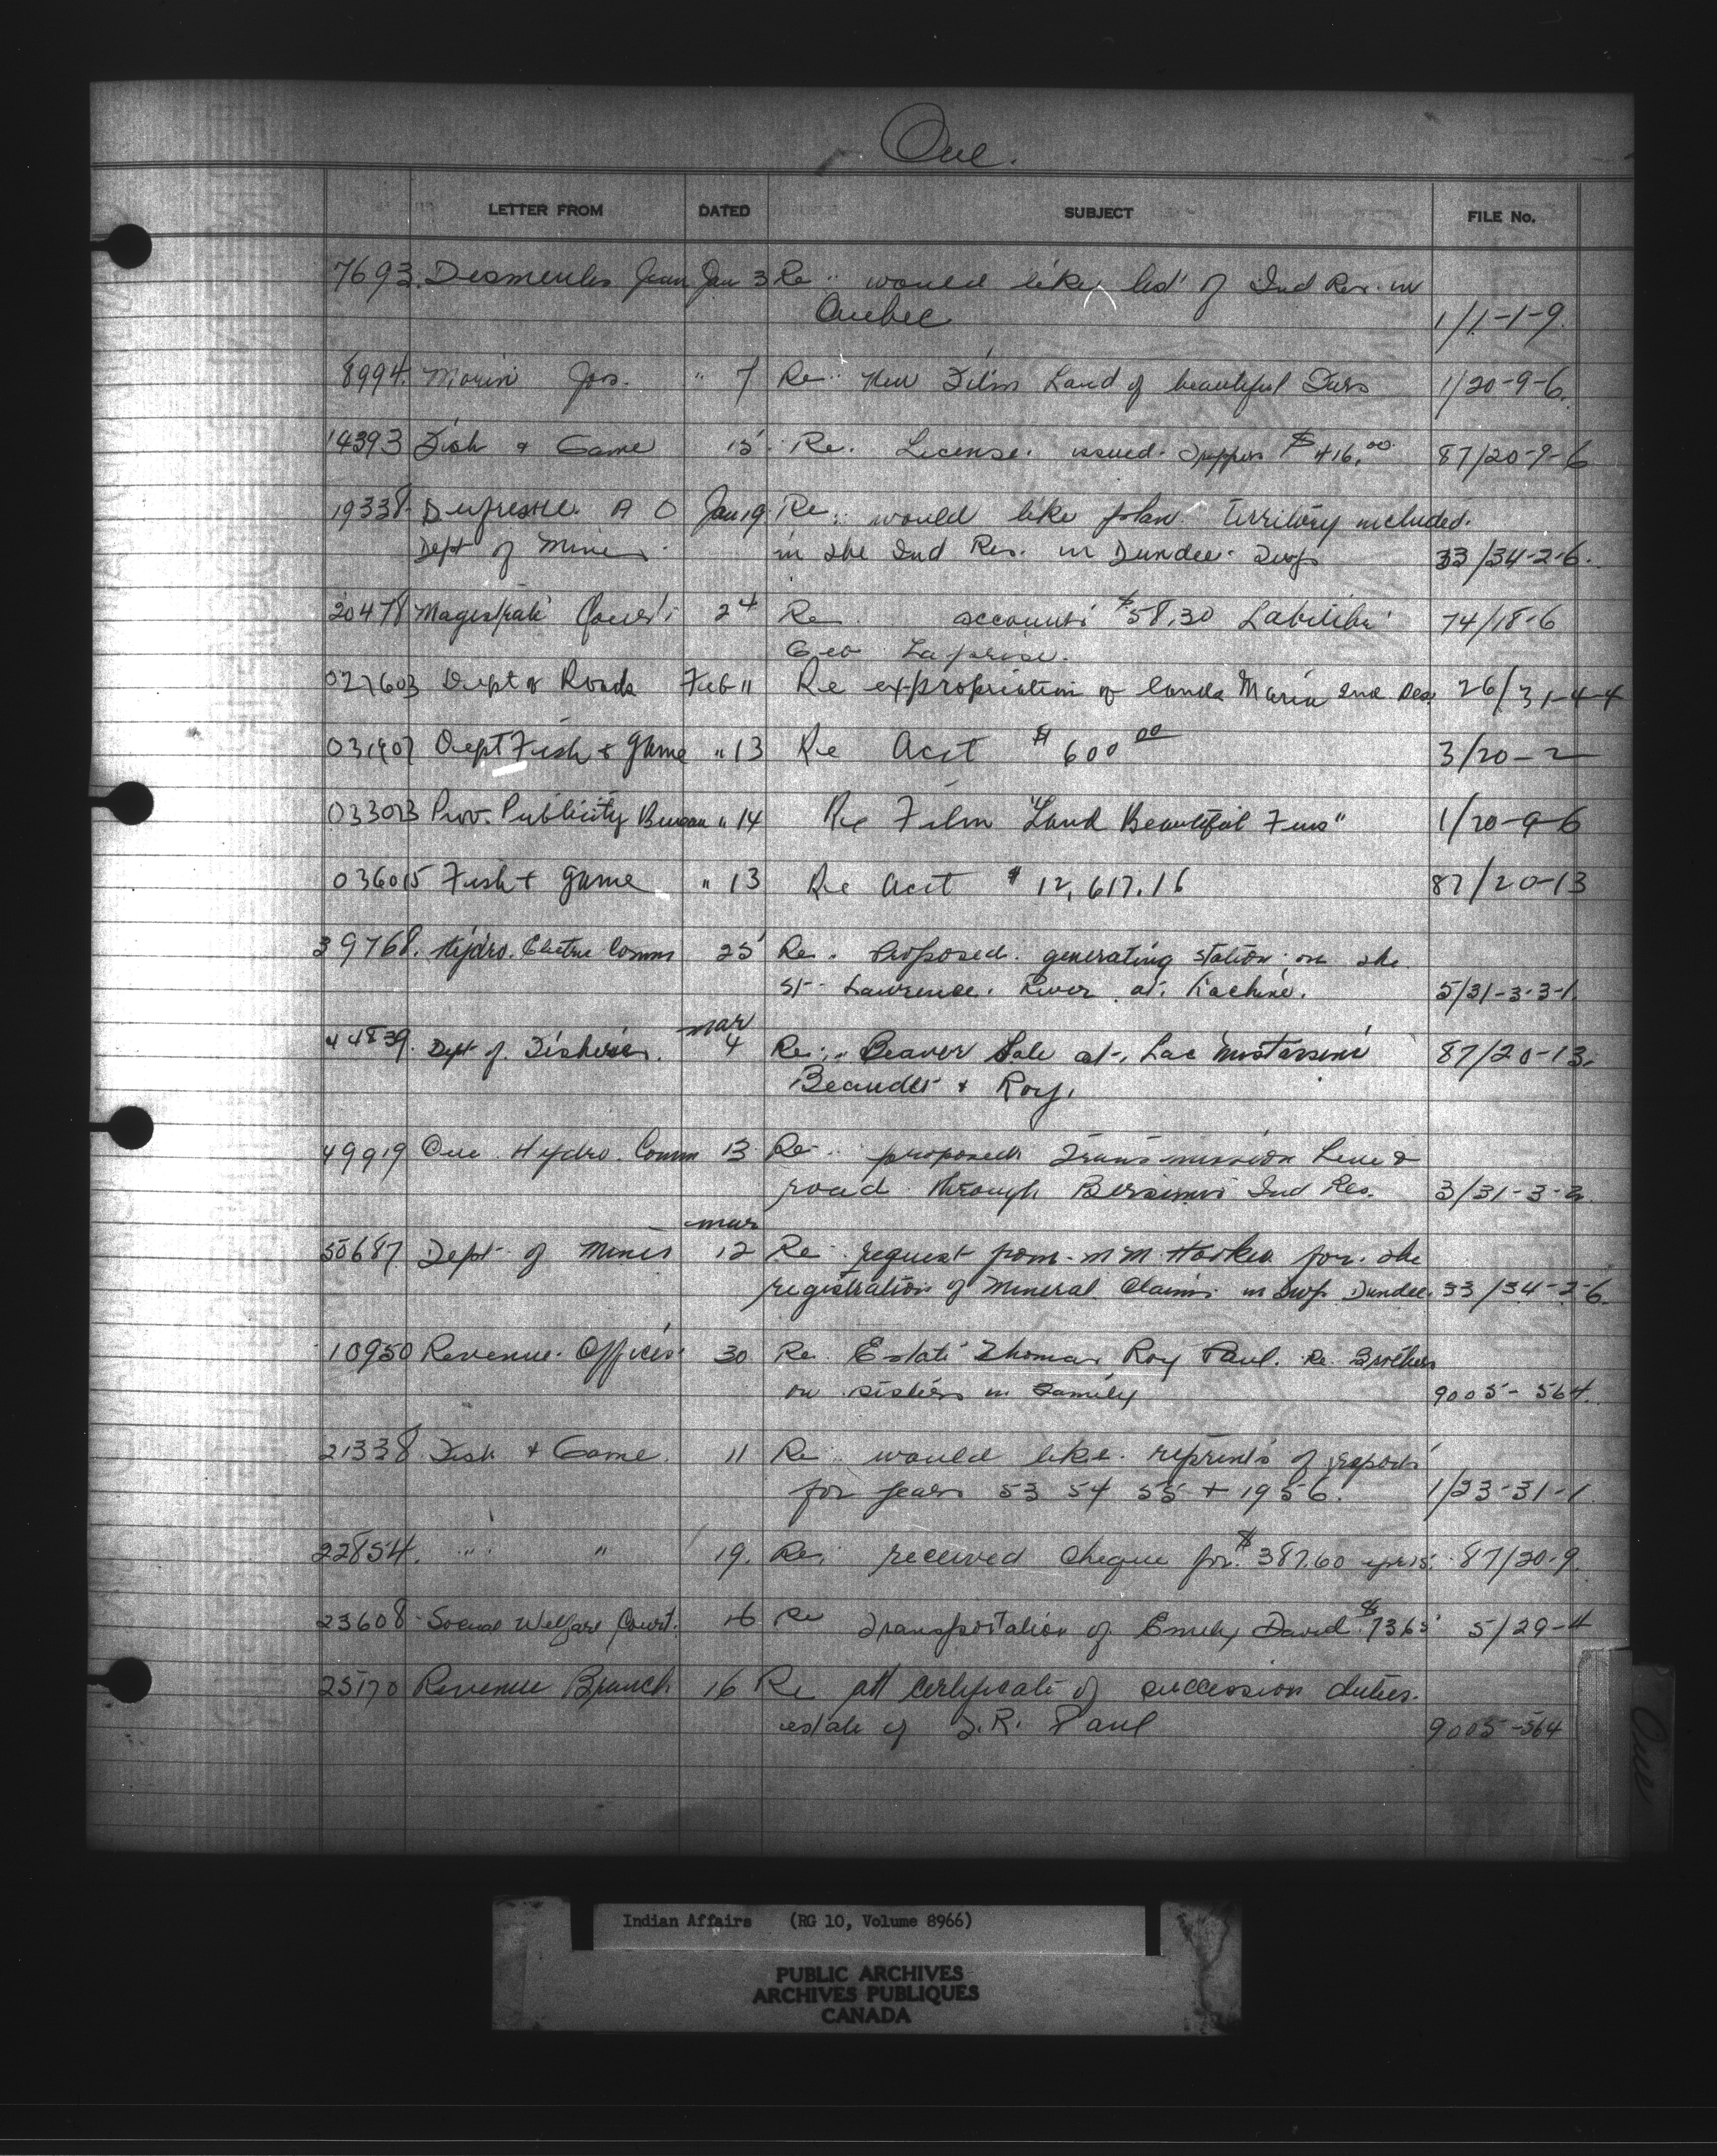 Que.
LETTER FROM DATED SUBJECT FILE No.
7693. Desmeules Jean Jan 3 Re would like list of Ind Res. in
Quebec 1/1-1-9.
8994. Morin Jos. " 7 Re New Film Land of beautiful Furs 1/20-9-6.
14393 Fish & Game 15 Re. License issued Trapper $416.00 87/20-9-6
19338 Dufresne A O Jan 19 Re would like plan territory included
Dept of Mines in the Ind Res. in Dundee Twp 33/34-2-6.
20478 Magistrate Court 24 Re account $58.30 74/18-6
Geo Laprise.
027603 Dept of Roads Feb 11 Re expropriation of lands Maria Ind Res. 26/31-4-4
031907 Dept Fish & Game " 13 Re Acct $600.00 3/20-2
033023 Prov. Publicity Bureau " 14 Re Film "Land Beautiful Furs" 1/20-9-6
036015 Fish & Game " 13 Re Acct $12,617.16 87/20-13
39768. Hydro. Electric Comm 25 Re. Proposed generating station on the
St Lawrence River at Lachine. 5/31-3-3-1.
mar
44839. Dept of Fisheries. 4 Re Beaver Sale at Lac Mistassini 87/20-13.
Beaudet & Roy.
49919 Que Hydro. Comm 13 Re proposed Transmission Line &
road through Bersimis Ind Res. 3/31-3-2
mar
50687 Dept of Mines 12 Re request from M M for the
registration of Mineral Claims in Twp Dundee. 33/34-2-6.
10950 Revenue Offices 30 Re Estate Thomas Roy Paul. Re Brothers
or sisters in Family 9005-564.
21338 Fish & Game. 11 Re would like reprints of reports
for years 53 54 55 & 1956. 1/23-31-1.
22854. " " 19. Re received cheque for $387.60 87/20-9.
23608 Social Welfare Court. 16 Re Transportation of Emily David $73.65 5/29-4
25170 Revenue Branch 16 Re att certificate of succession duties
estate of T.R. Paul 9005-564
Que
Indian Affairs (RG 10, Volume 8966)
PUBLIC ARCHIVES
ARCHIVES PUBLIQUES
CANADA